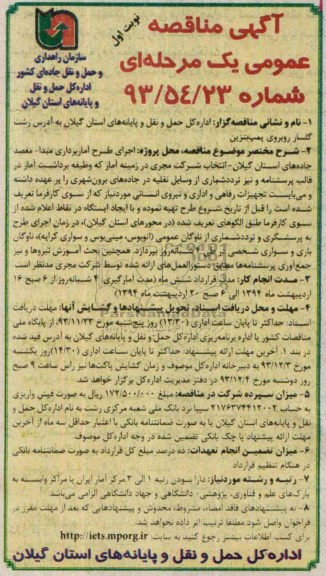 آگهی مناقصه
نوبت اول
عمومی یک مرحله‌ای
شماره ۹۳/۵۴/۲۳
سازمان راهداری
و حمل و نقل جاده‌ای کشور
اداره‌کل حمل و نقل
و پایانه‌های استان گیلان
۱- نام و نشانی مناقصه‌گزار: اداره‌کل حمل و نقل و پایانه‌های استان گیلان به آدرس رشت
گلسار روبروی پمپ‌بنزین
۲- شرح مختصر موضوع مناقصه، محل پروژه: اجرای طرح آماربرداری مبدا- مقصد
جاده‌های استان گیلان- انتخاب شرکت مجری در زمینه آمار که وظیفه برداشت آمار در
قالب پرسشنامه و نیز ترددشماری از وسایل نقلیه در جاده‌های برون‌شهری را بر عهده داشته
و می‌بایست تجهیزات رفاهی و اداری و نیروی انسانی موردنیاز که از سوی کارفرما تعریف
شده است را قبل از تاریخ شروع طرح تهیه نموده و با ایجاد ایستگاه در نقاط اعلام شده از
سوی کارفرما طبق الگوهای تعریف شده (در محورهای استان گیلان)، در زمان اجرای طرح
به پرسشگری و ترددشماری از ناوگان عمومی (اتوبوس، مینی‌بوس و سواری کرایه)، ناوگان
باری و سواری شخصی بپردازد. همچنین بحث آموزش نیروها و نیز
جمع‌آوری پرسشنامه‌ها مطابق دستورالعمل‌های ارائه شده توسط شرکت مجری مدنظر است
۳- مدت انجام کار: مدت قرارداد شش ماه (مدت آمارگیری: ۴ شبانه‌روز از ۶ صبح ۱۶
اردیبهشت ماه ۱۳۹۴ الی ۶ صبح ۲۰ اردیبهشت ماه ۱۳۹۴)
۴- مهلت و محل دریافت اسناد، تحویل پیشنهادها و گشایش آنها: مهلت دریافت
اسناد: حداکثر تا پایان ساعت اداری (۱۴:۳۰) روز پنج‌شنبه مورخ ۹۳/۱۱/۲۳ از پایگاه ملی
مناقصات کشور یا اداره برنامه‌ریزی اداره‌کل حمل و نقل و پایانه‌های گیلان به آدرس قید شده
در بند ۱. آخرین مهلت ارائه پیشنهاد: حداکثر تا پایان ساعت اداری (۱۴:۳۰) روز یکشنبه
مورخ ۹۳/۱۲/۳ به دبیرخانه اداره‌کل موصوف و زمان گشایش پاکت‌ها نیز راس ساعت ۹ صبح
روز دوشنبه مورخ ۹۳/۱۲/۴ در دفتر مدیریت اداره‌کل برگزار خواهد شد.
۵- میزان سپرده شرکت در مناقصه: مبلغ ۱۷۲/۵۰۰/۰۰۰ ریال به صورت فیش واریزی
به حساب ۲۱۷۶۳۷۴۴۱۲۰۰۲ سیبا نزد بانک ملی شعبه مرکزی رشت به نام اداره‌کل حمل و
نقل و پایانه‌های استان گیلان یا به صورت ضمانتنامه بانکی با اعتبار حداقل سه ماه از آخرین
مهلت ارائه پیشنهاد یا چک بانکی تضمین شده در وجه اداره‌کل موصوف
۶- میزان تضمین انجام تعهدات: ده درصد مبلغ کل قرارداد به صورت ضمانتنامه بانکی
در هنگام تنظیم قرارداد
۷- رتبه و رشته موردنیاز: دارا بودن رتبه ۱ الی ۳ مرکز آمار ایران یا مراکز وابسته به
پارک‌های علم و فناوری، پژوهشی، دانشگاهی و جهاد دانشگاهی الزامی می‌باشد
۸- به پیشنهادهای فاقد امضاء، مشروط، مخدوش و پیشنهادهایی که بعد از مهلت مقرر در
فراخوان واصل شود مطلقا ترتیب اثر داده نخواهد شد.
برای کسب اطلاعات بیشتر رجوع کنید به سایت http://iets.mporg.ir
اداره‌کل حمل و نقل و پایانه‌های استان گیلان